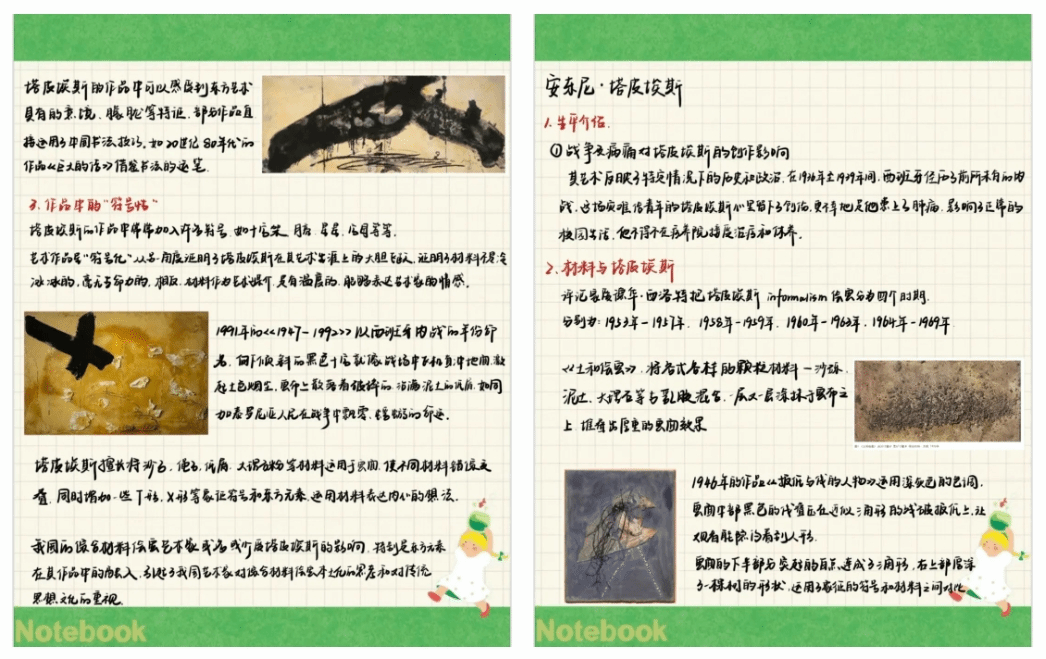 塔皮埃斯的作品中可以感受到东方艺术
具有的意境、朦胧等特征,部分作品直
接运用了中国书法技巧,如20世纪80年代的
作品《巨大的结》借鉴书法的运笔
3.作品中的“符号性”
塔皮埃斯的作品中常常加入许多符号,如十字架、月亮、星星、字母等等.
艺术作品是“符号化”从另一角度证明了塔皮埃斯在其艺术生涯上的大胆,证明了材料不是冷
冰冰的,毫无生命力的,相反,材料作为艺术媒介,是有温度的,能够表达艺术家的情感。
1991年的《1947-1992》以西班牙内战的年份命
名,向下倾斜的黑色十字就像战场中下机直冲地面,激
起土色烟尘,画布上散落着破碎的、沾满泥土的,如同
加泰罗尼亚人民在战争中飘零、的命运。
塔皮埃斯擅长将沙子、绳子、、大理石粉等材料运用于画面,使不同材料错综交
叠,同时增加一些T形、X形等象征符号和东方元素,运用材料表达内心的想法。
我国的综合材料绘画艺术家或多或少受塔皮埃斯的影响,特别是东方元素
在其作品中的融入,引起了我国艺术家对综合材料绘画本土化的思考和对传统
思想文化的重视。
Notebook
安东尼·塔皮埃斯
1.生平介绍.
①战争及病痛对塔皮埃斯的创作影响
其艺术反映了特定情况下的历史和政治.在1936年至1939年间,西班牙经历了前所未有的内
战,这场灾难给青年的塔皮埃斯心里留下了创伤,更不幸地是他患上了肺病,影响了正常的
校园生活,他不得不在疗养院接受治疗和休养。
2.材料与塔皮埃斯
评论家屡课年·西洛特把塔皮埃斯 informalism 绘画分为四个时期.
分别为:1953年-1957年、1958年-1959年、1960年-1963年、1964年-1969年
《土和绘画》,将各式各样的颗粒材料—沙砾、
泥土、大理石等与乳胶混合,一层又一层涂抹于画布之
上,堆砌出厚重的画面效果
1946年的作品《报纸与线的人物》运用深灰色的色调,
画面中部黑色的线叠压在近似三角形的残破报纸上,让
观看者能隐约看到人形.
画面的下半部分类超的白点,连成了三角形,右上部厚涂
了一棵树的形状,运用了象征的符号和材料之间对比
Notebook